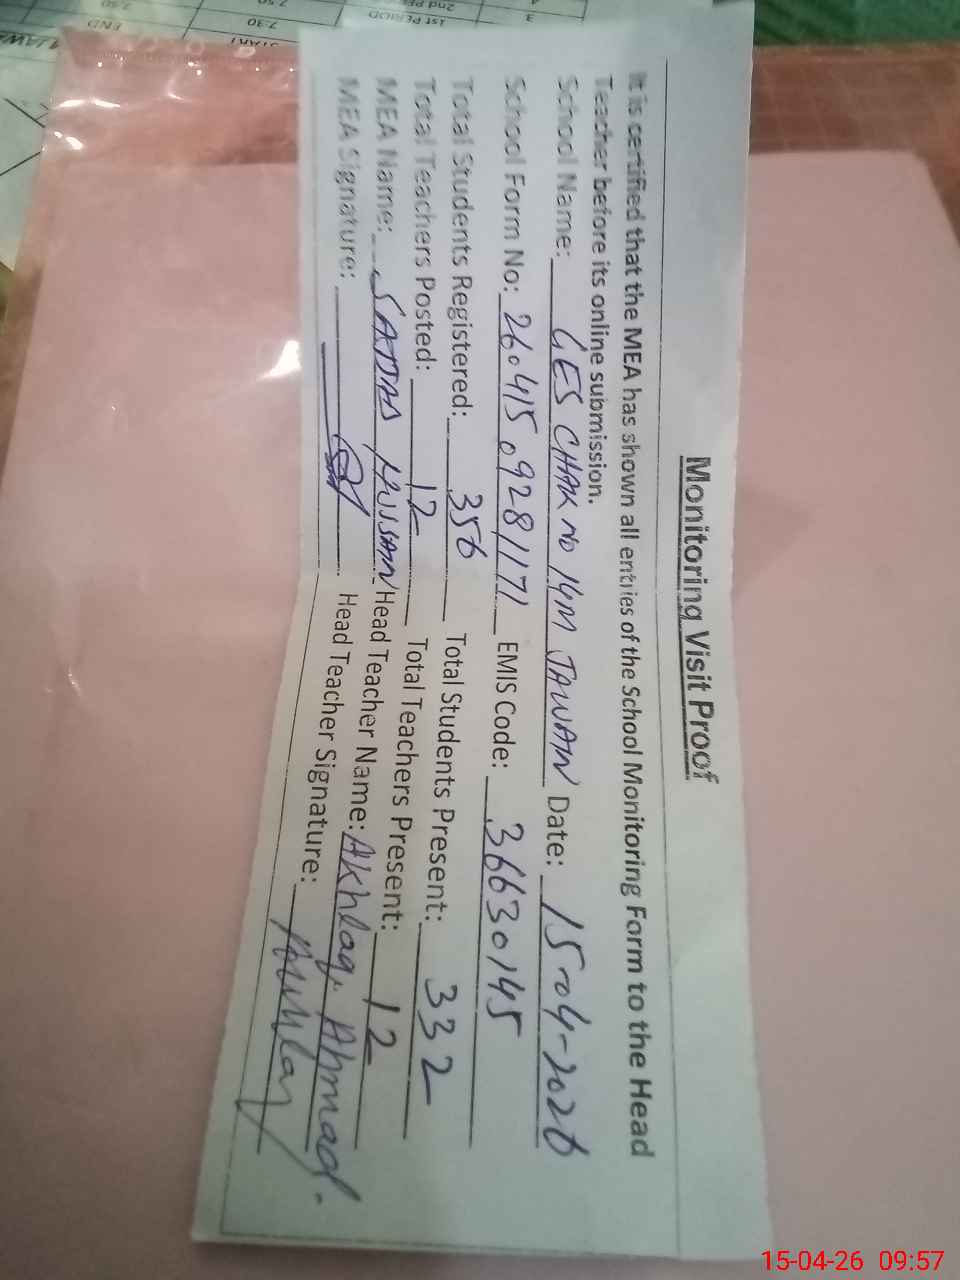 Monitoring Visit Proof
It is certified that the MEA has shown all entries of the School Monitoring Form to the Head
Teacher before its online submission.
School Name: GES CHAK NO 14M JAWAN Date: 15-04-2026
School Form No: 26041509281171 EMIS Code: 36630145
Total Students Registered: 356 Total Students Present: 332
Total Teachers Posted: 12 Total Teachers Present: 12
MEA Name: HUSSAIN Head Teacher Name: Akhlaq Ahmad.
MEA Signature: Head Teacher Signature:
1st PERIOD
START 7.30
END
3
15-04-26 09:57